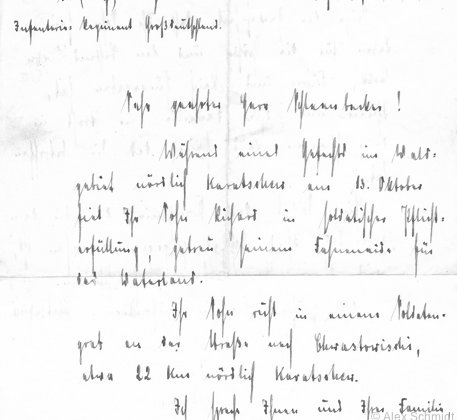 Infanterie-Regiment Großdeutschland.
Sehr geehrter Herr Schleenbecker!
Während eines Gefechts im Wald-
gebiet nördlich Karatschew am 13. Oktober
fiel Ihr Sohn Richard in soldatischer Pflicht-
erfüllung, getreu seinem Fahneneide für
das Vaterland.
Ihr Sohn ruht in einem Soldaten-
grab an der Straße nach Chwastowitschi,
etwa 22 km nördlich Karatschew.
Ich spreche Ihnen und Ihrer Familie
© Alex Schmidt